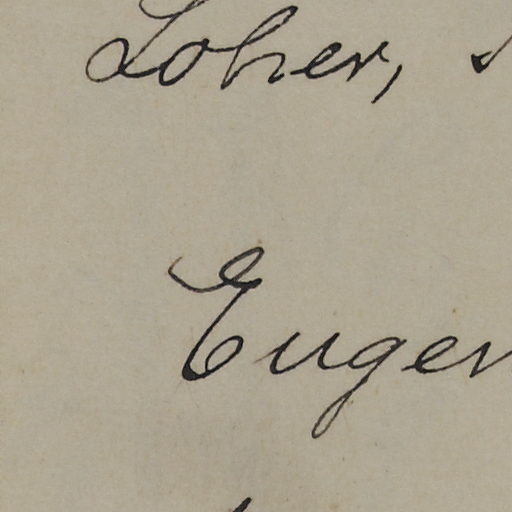 Loher,
Eugen